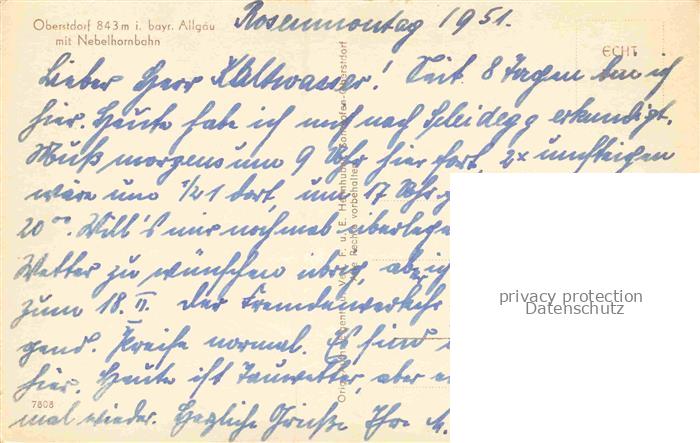 Oberstdorf 843 m i. bayr. Allgäu
mit Nebelhornbahn
Rosenmontag 1951.
ECHT
Lieber Herr Kaltwasser! Seit 8 Tagen bin ich
hier. Heute habe ich mich nach Scheidegg erkundigt.
Muß morgens um 9 Uhr hier fort, 2x umsteigen
wäre um 1/21 dort, um 17 Uhr
20°°. Will's mir nochmal überlege
Wetter zu wünschen übrig,
zum 18. II. Der Fremdenverkehr
gend. Preise normal. Es sind
hier. Heute ist Tauwetter, aber
mal wieder. Herzliche Grüße Ihre M.
7808
privacy protection
Datenschutz